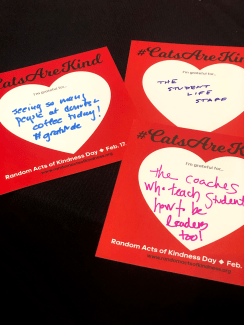 #CatsAreKind
I'm grateful for...
seeing so many
people at donuts &
coffee today!
#gratitude
Random Acts of Kindness Day ◆ Feb. 17
#CatsAreKind
I'm grateful for...
THE
STUDENT
LIFE
STAFF
#CatsAreKind
I'm grateful for...
the coaches
who teach students
how to be
leaders
too!
Random Acts of Kindness Day ◆ Feb.